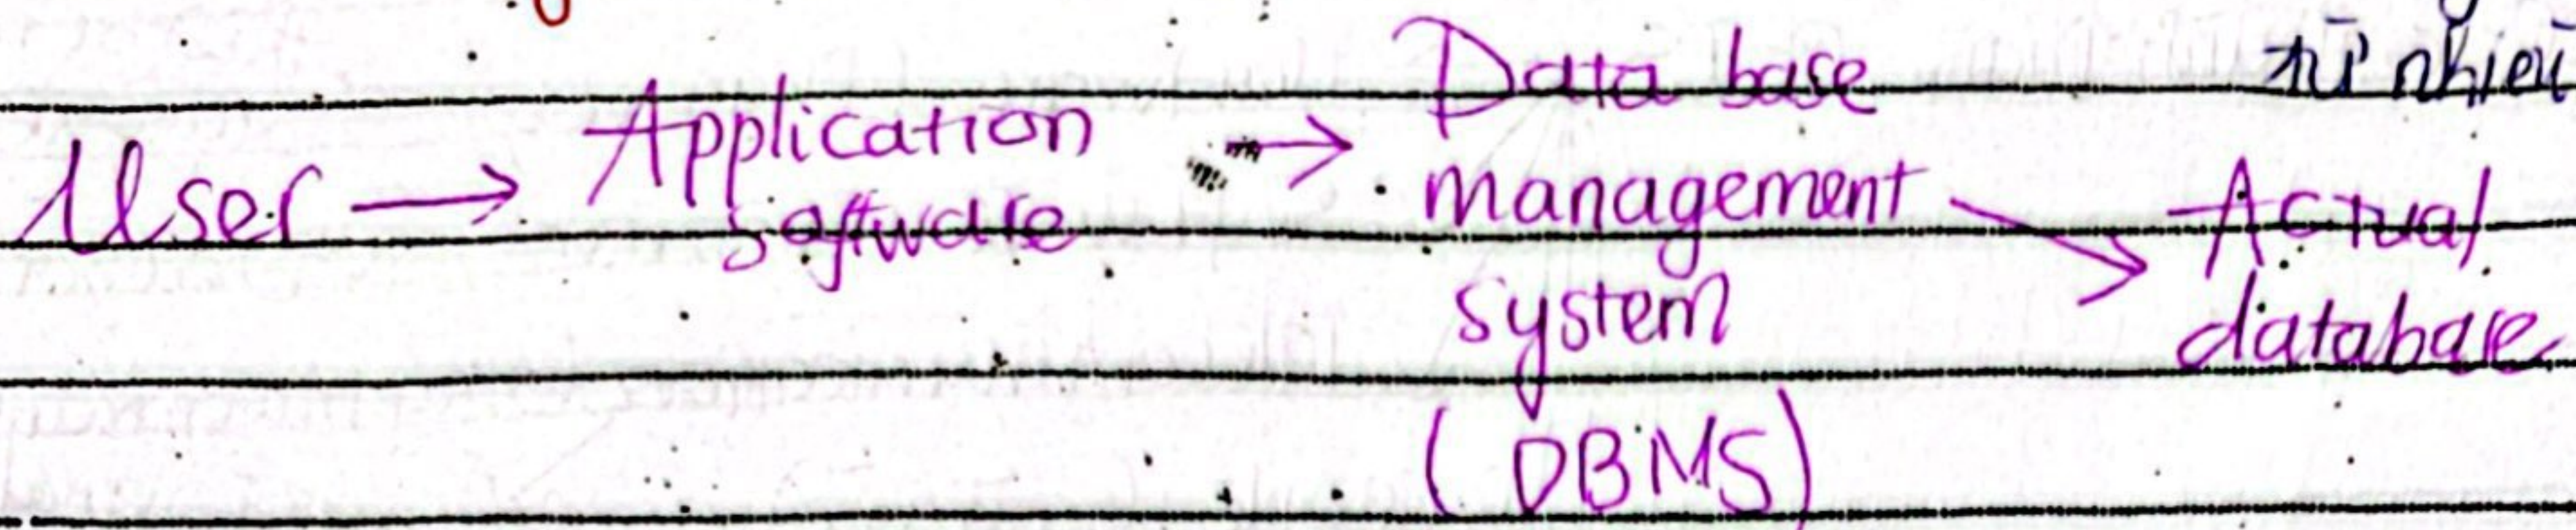 User → Application software → Data base management system (DBMS) → Actual database
từ nhiều